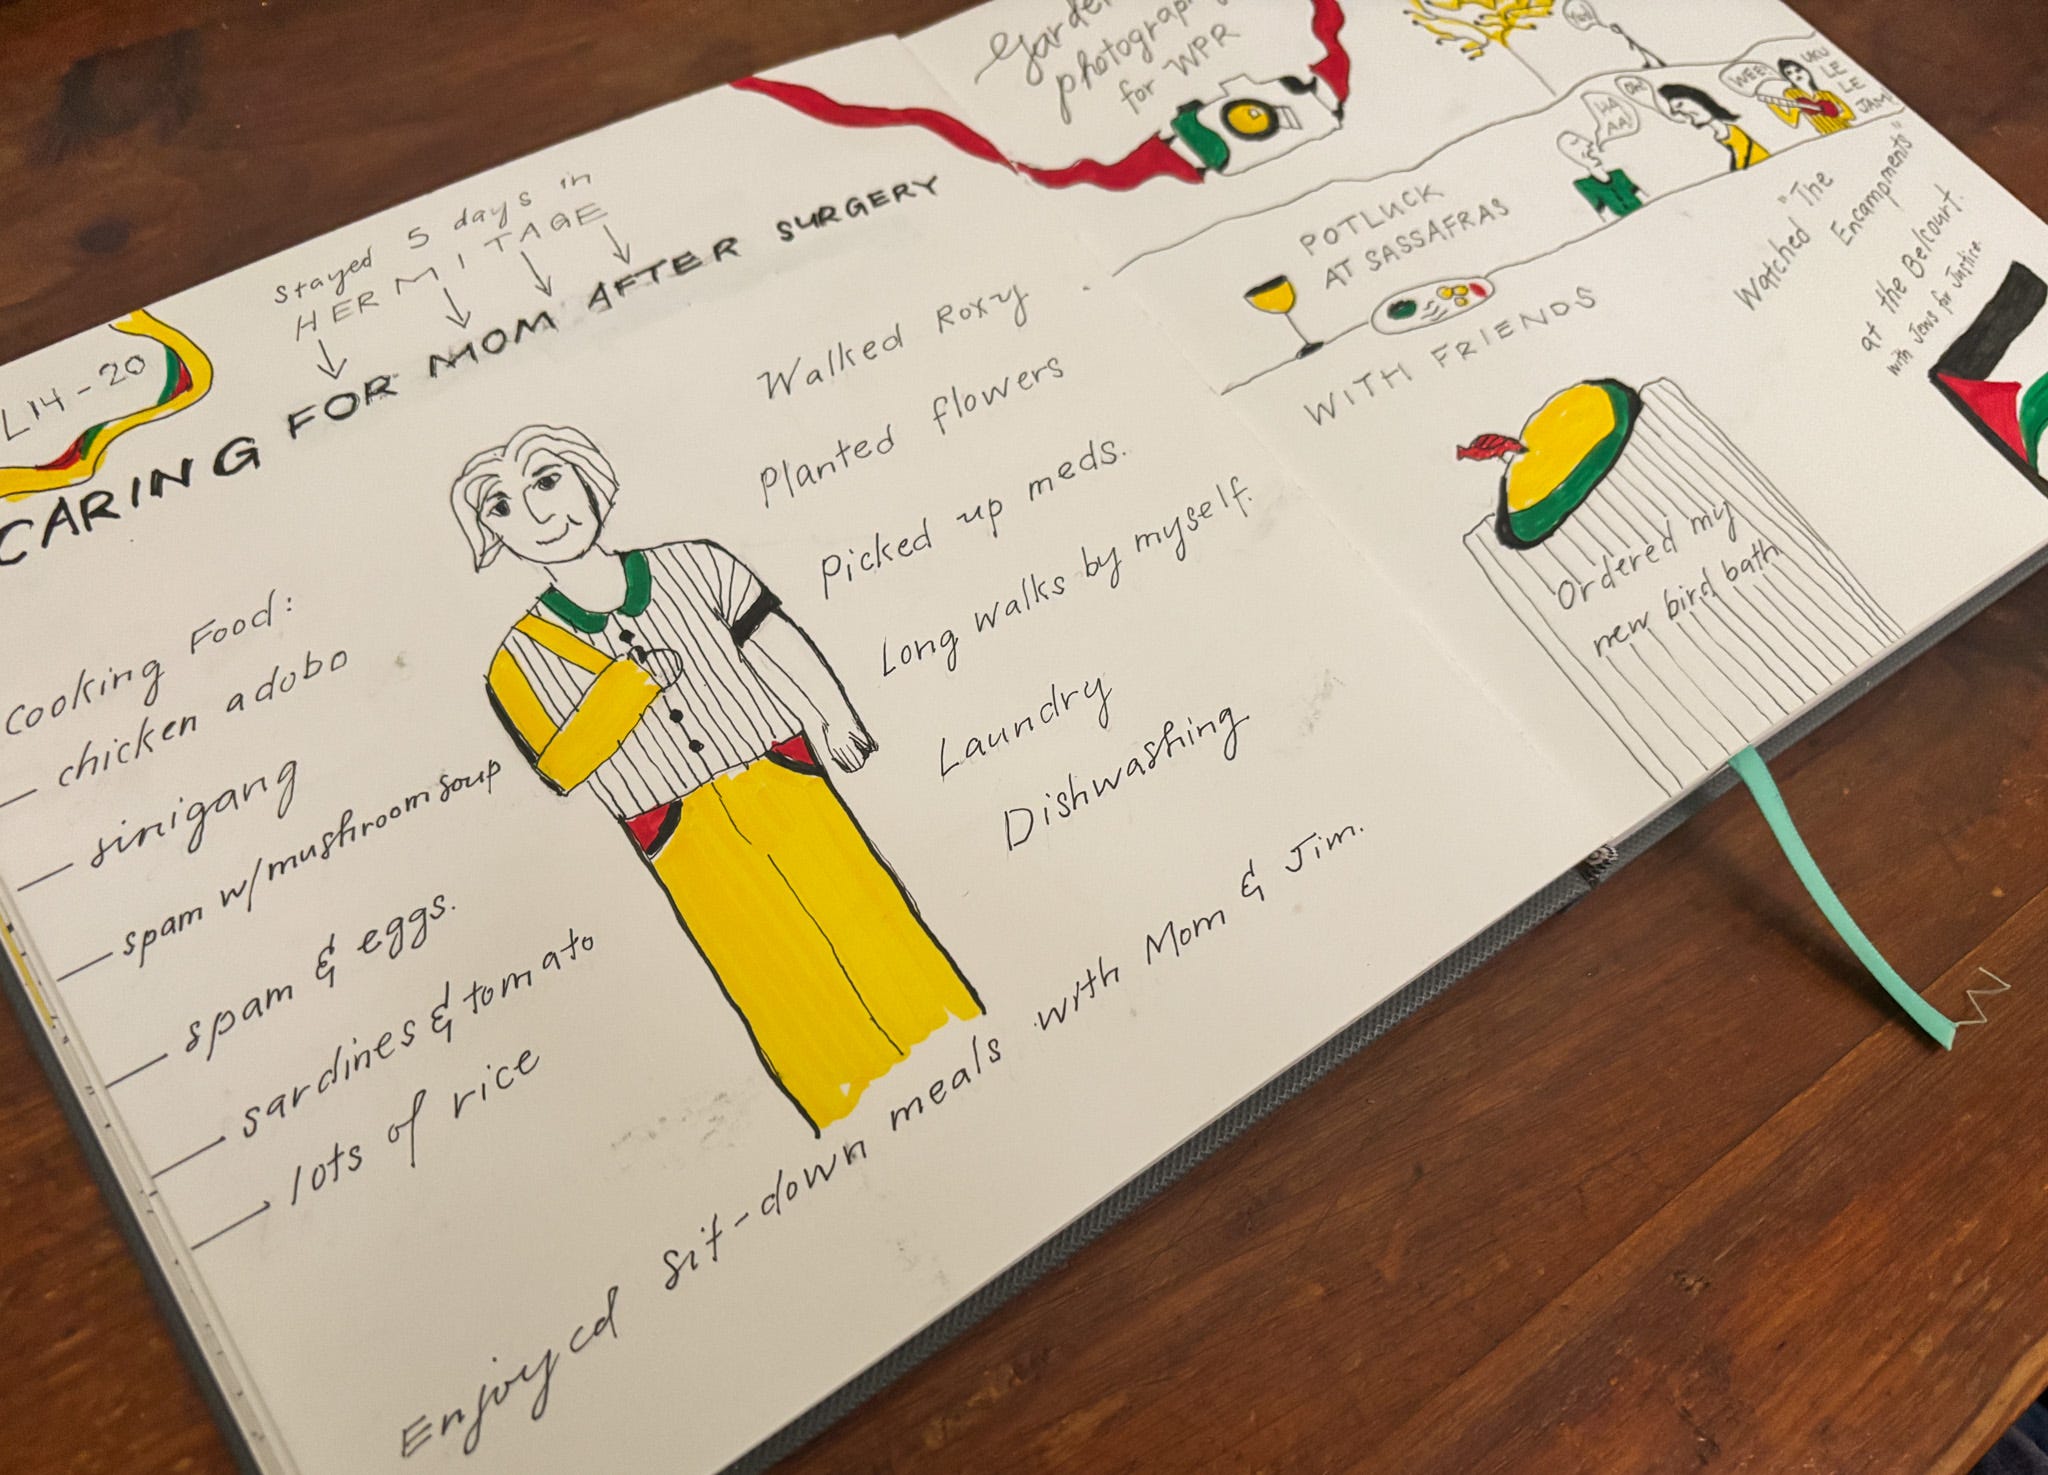 L 14-20
Stayed 5 days in
HERMITAGE
CARING FOR MOM AFTER SURGERY
Cooking Food:
— chicken adobo
— sinigang
— spam w/mushroom soup
— spam & eggs.
— sardines & tomato
— lots of rice
Walked Roxy
Planted flowers
Picked up meds.
Long walks by myself.
Laundry
Dishwashing
Enjoyed sit-down meals with Mom & Jim.
photography
for WPR
POTLUCK
AT SASSAFRAS
WITH FRIENDS
HA
AA!
OH!
WEE!
UKU
LE
LE
JAM
Watched "The
Encampments"
at the Belcourt.
with Jews for Justice
Ordered my
new bird bath